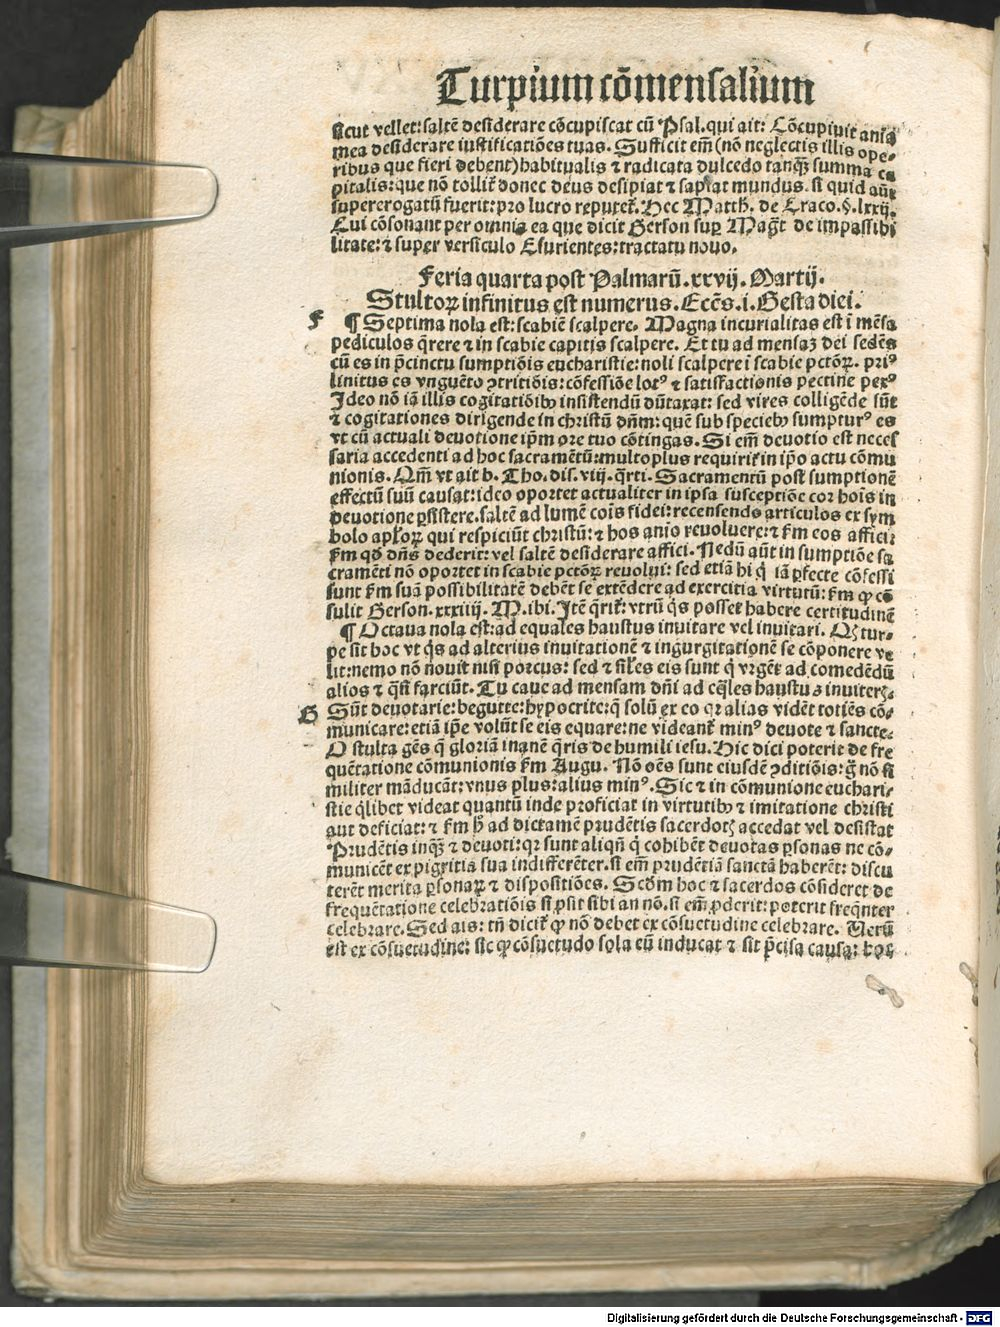 Turpium cōmensalium
sicut vellet: saltē desiderare cōcupiscat cū Psal. qui ait: Cōcupiuit aīa
mea desiderare iustificatiões tuas. Sufficit em̄ (nō neglectis illis ope-
ribus que fieri debent) habitualis ⁊ radicata dulcedo tanqȝ summa ca
pitalis: que nō tollit̄ donec deus desipiat ⁊ sapiat mundus. si quid aūt
supererogatū fuerit: pro lucro reputet̄. Hec Matth. de Craco. §. lxxij.
Cui cōsonant per omnia ea que dicit Gerson sup Maḡt de impassibi
litate: ⁊ super versiculo Esurientes: tractatu nouo.
Feria quarta post Palmarū. xxvij. Martij.
Stultoꝝ infinitus est numerus. Ecc̄s. i. Gesta diei.
F ¶ Septima nola est: scabiē scalpere. Magna incurialitas est ī mēsa
pediculos q̄rere ⁊ in scabie capitis scalpere. Et tu ad mensaȝ dei sedēs
cū es in p̄cinctu sumptiōis eucharistie: noli scalpere ī scabie pctōꝝ. priꝰ
linitus es vnguēto ꝯtritiōis: cōfessiōe lotꝰ ⁊ satisfactionis pectine pexꝰ
Ideo nō iā illis cogitatiōibꝰ insistendū dūtaxat: sed vires colligēde sūt
⁊ cogitationes dirigende in christū dn̄m: quē sub speciebꝰ sumpturꝰ es
vt cū actuali deuotione ip̄m ore tuo cōtingas. Si em̄ deuotio est neces
saria accedenti ad hoc sacramētū: multoplus requirit̄ in ip̄o actu cōmu
nionis. Qm̄ vt ait b. Tho. dis. viij. q̄rti. Sacramentū post sumptionē
effectū suū causat: ideo oportet actualiter in ipsa susceptiōe cor hoīs in
deuotione ꝑsistere. saltē ad lumē cōis fidei: recensendo articulos ex sym
bolo apl̄oꝝ qui respiciūt christū: ⁊ hos anīo reuoluere: ⁊ fm̄ eos affici:
fm̄ qd̄ dn̄s dederit: vel saltē desiderare affici. Nedū aūt in sumptiōe sa
cramēti nō oportet in scabie pctōꝝ reuolui: sed etiā hi q̄ iā ꝑfecte cōfessi
sunt fm̄ suā possibilitatē debēt se extēdere ad exercitia virtutū: fm̄ ꝙ cō
sulit Gerson. xxxiiij. M. ibi. Itē q̄rit̄: vtrū q̄s posset habere certitudinē
¶ Octaua nola est: ad equales haustus inuitare vel inuitari. Qȝ tur-
pe sit hoc vt q̄s ad alterius inuitationē ⁊ ingurgitationē se cōponere ve
lit: nemo nō nouit nisi porcus: sed ⁊ sil̄es eis sunt q̄ vrgēt ad comedēdū
alios ⁊ q̄si farciūt. Tu caue ad mensam dn̄i ad eq̄les haustus inuiteris.
G Sūt deuotarie: begutte: hypocrite: q̄ solū ex eo qꝛ alias vidēt totiēs cō-
municare: etiā ip̄e volūt se eis equare: ne videant̄ minꝰ deuote ⁊ sancte.
O stulta gēs q̄ gloriā inanē q̄ris de humili iesu. Hic dici poterit de fre
quētatione cōmunionis fm̄ Augu. Nō oēs sunt eiusdē ꝯditiōis: ḡ nō si
militer māducāt: vnus plus: alius minꝰ. Sic ⁊ in cōmunione euchari-
stie q̄libet videat quantū inde proficiat in virtutibꝰ ⁊ imitatione christi
aut deficiat: ⁊ fm̄ h̄ ad dictamē prudētis sacerdotꝭ accedat vel desistat
Prudētis inqȝ ⁊ deuoti: qꝛ sunt aliqn̄ q̄ cohibēt deuotas ꝑsonas ne cō-
municēt ex pigritia sua indifferēter. si em̄ prudētiā sanctā haberēt: discu
terēt merita ꝑsonaꝝ ⁊ dispositiōes. Scd̄m hoc ⁊ sacerdos cōsideret de
frequētatione celebratiōis si ꝓsit sibi an nō. si em̄ ꝓderit: poterit freq̄nter
celebrare. Sed ais: tn̄ dicit̄ ꝙ nō debet ex cōsuetudine celebrare. Verū
est ex cōsuetudine: sic ꝙ cōsuetudo sola eū inducat ⁊ sit p̄cisa causa: hoc
Digitalisierung gefördert durch die Deutsche Forschungsgemeinschaft - DFG